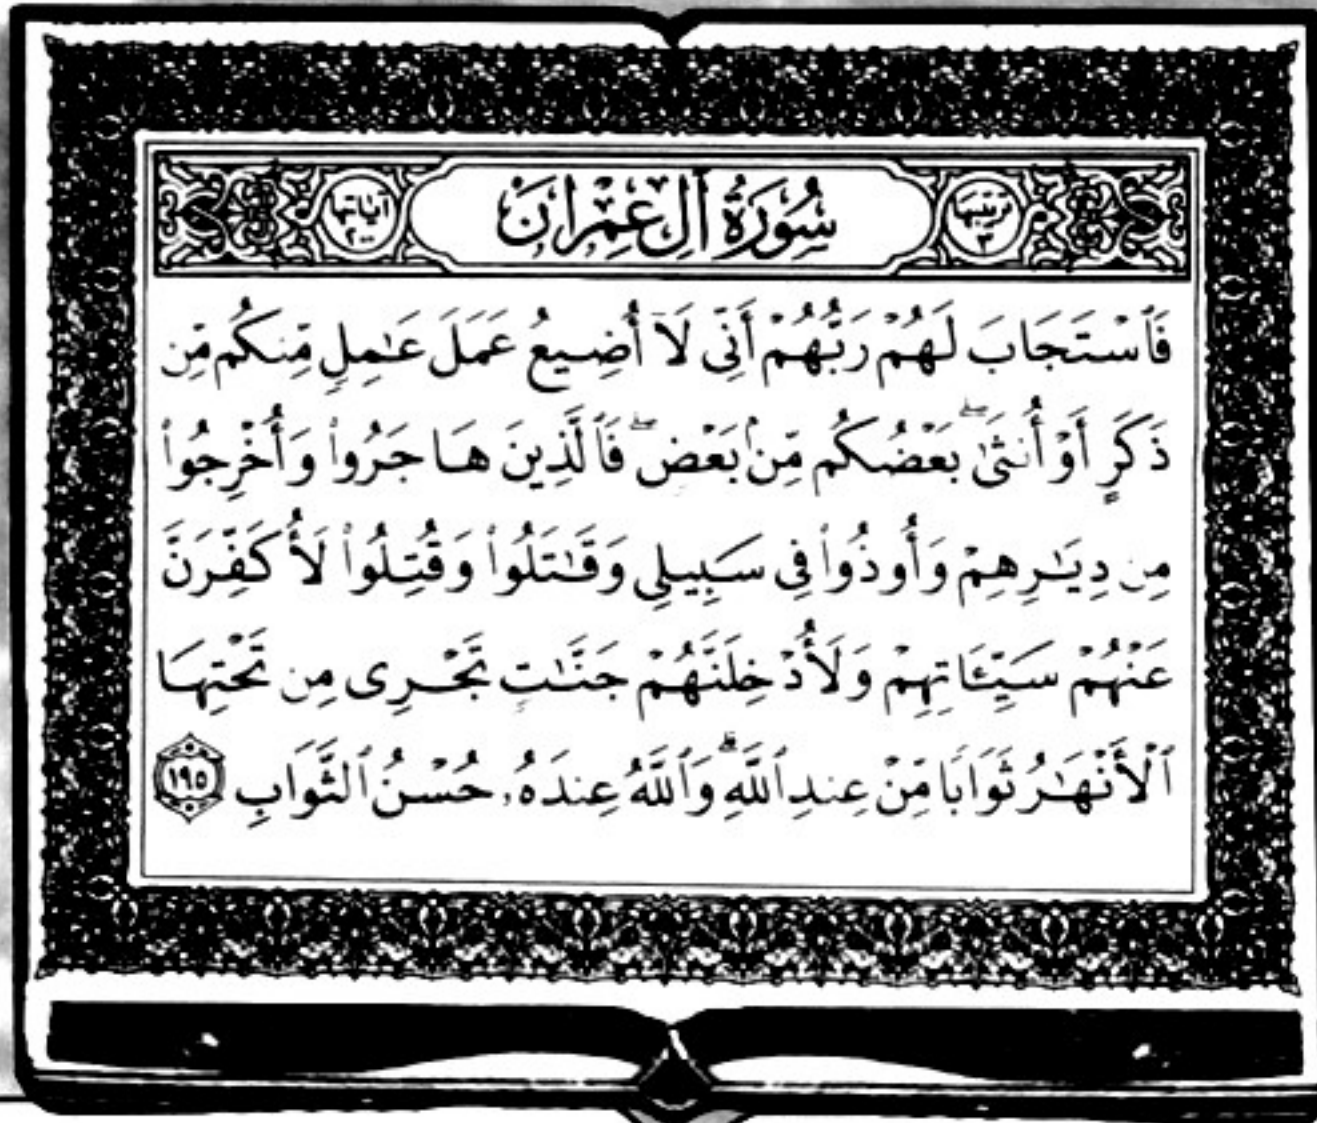 ترتيبها ٣ سُورَةُ آلِ عِمْرَانَ آياتها ٢٠٠
فَٱسْتَجَابَ لَهُمْ رَبُّهُمْ أَنِّى لَآ أُضِيعُ عَمَلَ عَـٰمِلٍ مِّنكُم مِّن
ذَكَرٍ أَوْ أُنثَىٰ ۖ بَعْضُكُم مِّنۢ بَعْضٍ ۖ فَٱلَّذِينَ هَاجَرُوا۟ وَأُخْرِجُوا۟
مِن دِيَـٰرِهِمْ وَأُوذُوا۟ فِى سَبِيلِى وَقَـٰتَلُوا۟ وَقُتِلُوا۟ لَأُكَفِّرَنَّ
عَنْهُمْ سَيِّـَٔاتِهِمْ وَلَأُدْخِلَنَّهُمْ جَنَّـٰتٍ تَجْرِى مِن تَحْتِهَا
ٱلْأَنْهَـٰرُ ثَوَابًا مِّنْ عِندِ ٱللَّهِ ۗ وَٱللَّهُ عِندَهُۥ حُسْنُ ٱلثَّوَابِ ١٩٥